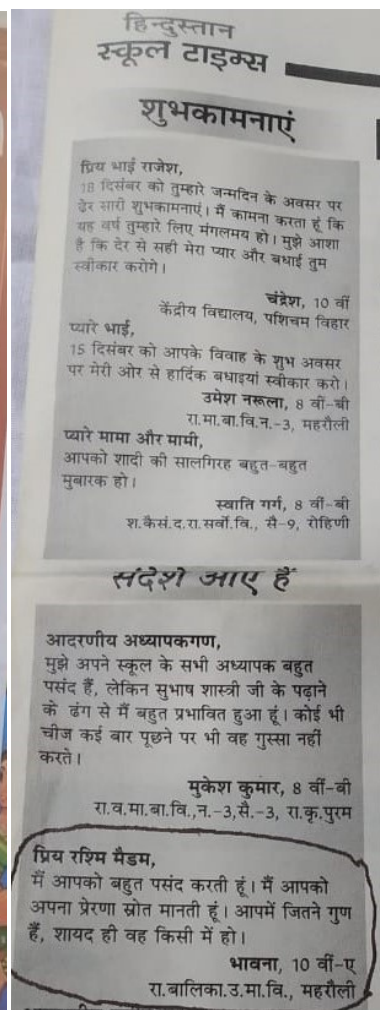 हिन्दुस्तान
स्कूल टाइम्स
शुभकामनाएं
प्रिय भाई राजेश,
18 दिसंबर को तुम्हारे जन्मदिन के अवसर पर
ढेर सारी शुभकामनाएं। मैं कामना करता हूं कि
यह वर्ष तुम्हारे लिए मंगलमय हो। मुझे आशा
है कि देर से सही मेरा प्यार और बधाई तुम
स्वीकार करोगे।
चंद्रेश, 10 वीं
केंद्रीय विद्यालय, पशिचम विहार
प्यारे भाई,
15 दिसंबर को आपके विवाह के शुभ अवसर
पर मेरी ओर से हार्दिक बधाइयां स्वीकार करो।
उमेश नरूला, 8 वीं-बी
रा.मा.बा.वि.न.-3, महरौली
प्यारे मामा और मामी,
आपको शादी की सालगिरह बहुत-बहुत
मुबारक हो।
स्वाति गर्ग, 8 वीं-बी
श.कैसं.द.रा.सर्वो.वि., सै-9, रोहिणी
संदेशे आए हैं
आदरणीय अध्यापकगण,
मुझे अपने स्कूल के सभी अध्यापक बहुत
पसंद हैं, लेकिन सुभाष शास्त्री जी के पढ़ाने
के ढंग से मैं बहुत प्रभावित हुआ हूं। कोई भी
चीज कई बार पूछने पर भी वह गुस्सा नहीं
करते।
मुकेश कुमार, 8 वीं-बी
रा.व.मा.बा.वि.,न.-3,सै.-3, रा.कृ.पुरम
प्रिय रश्मि मैडम,
मैं आपको बहुत पसंद करती हूं। मैं आपको
अपना प्रेरणा स्रोत मानती हूं। आपमें जितने गुण
हैं, शायद ही वह किसी में हो।
भावना, 10 वीं-ए
रा.बालिका.उ.मा.वि., महरौली